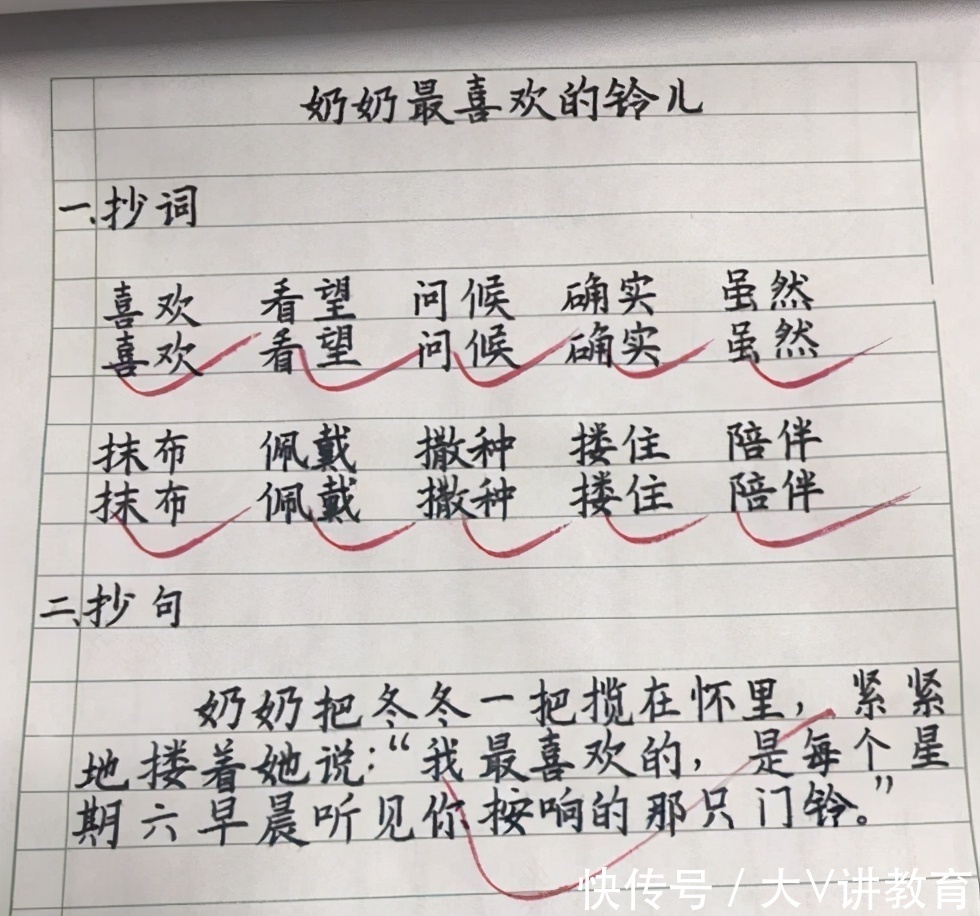 奶奶最喜欢的铃儿
一、抄词
喜欢 看望 问候 确实 虽然
喜欢 看望 问候 确实 虽然
抹布 佩戴 撒种 搂住 陪伴
抹布 佩戴 撒种 搂住 陪伴
二、抄句
奶奶把冬冬一把揽在怀里，紧紧
地搂着她说：“我最喜欢的，是每个星
期六早晨听见你按响的那只门铃。”
快传号 / 大V讲教育